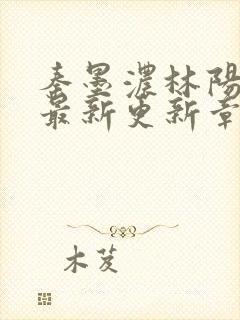 秦墨濃林陽
最新更新章
木芨